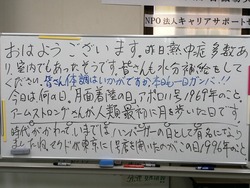 NPO法人キャリアサポート
おはようございます。昨日熱中症多数あ
り、室内でもあったそうです。皆さんも水分補給をして
ください。皆さん体調はいかがですか今日も一日ガンバ!!!
今日は何の日、月面着陸の日。アポロ11号1969年のこと
アームストロングさんが人類最初に月を歩いた日です
時代がかわって、いまではハンバーガーの日として有名になり
ました。マクドが東京に1号店を開いたのがこの日1996年のこと